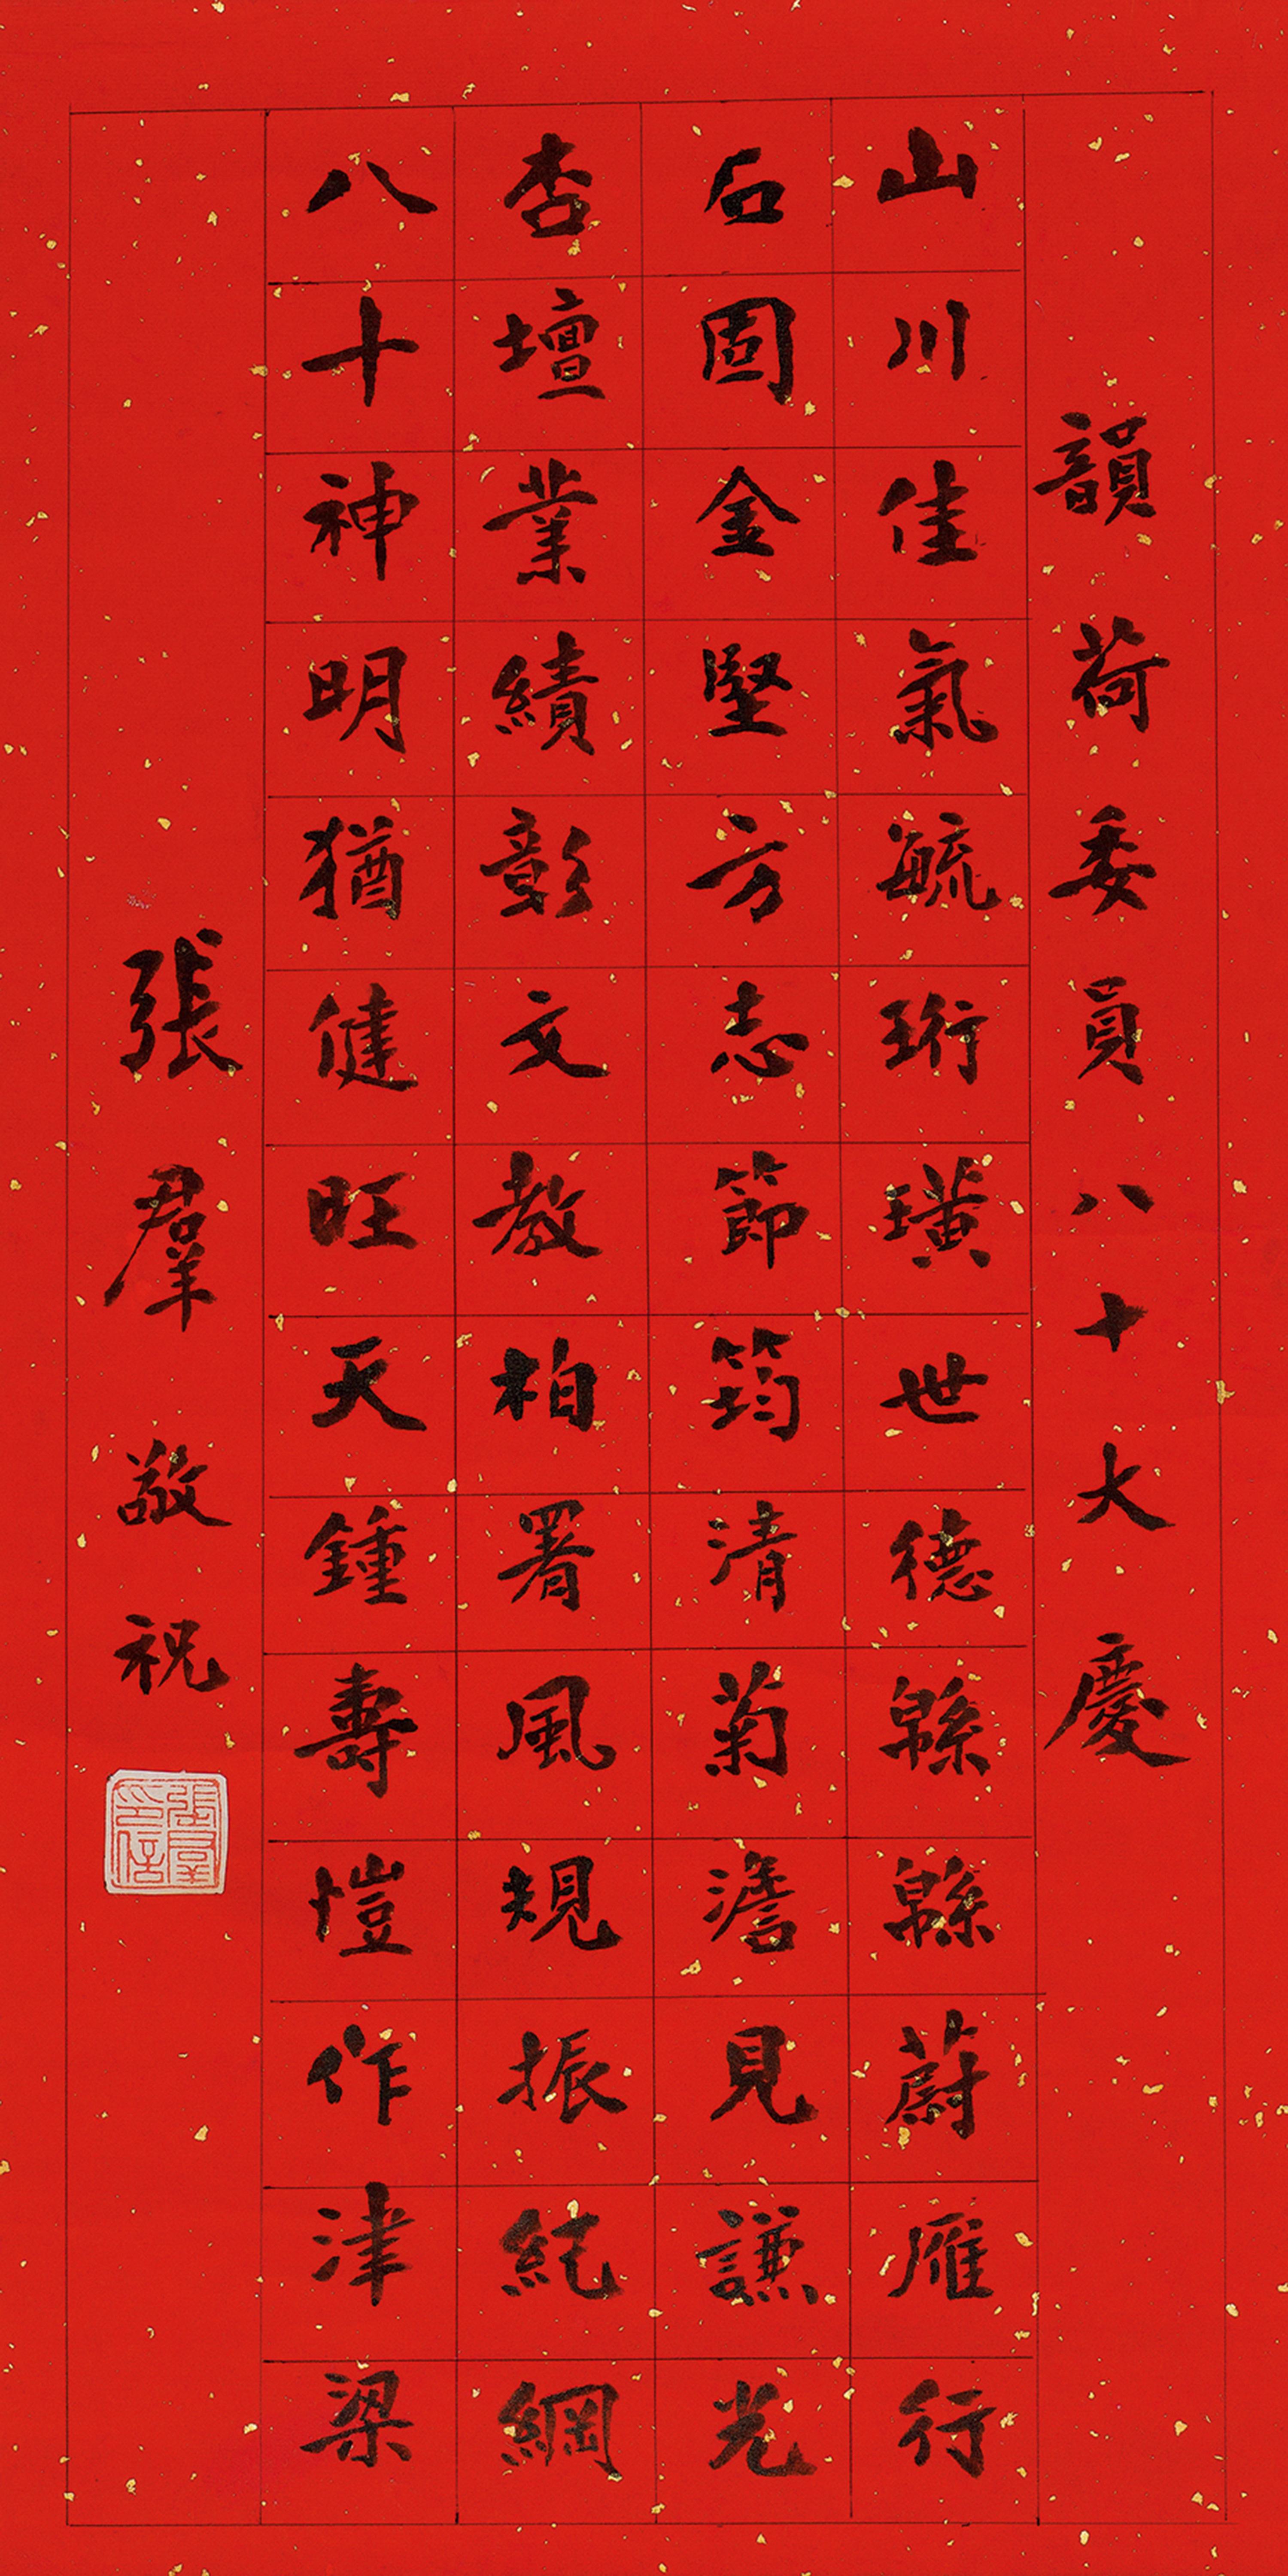 韻荷委員八十大慶
山川佳氣毓珩璜世德緜緜蔚雁行
石固金堅方志節筠清菊澹見謙光
杏壇業績彰文教柏署風規振紀綱
八十神明猶健旺天錫壽愷作津梁
張羣敬祝
張羣印信